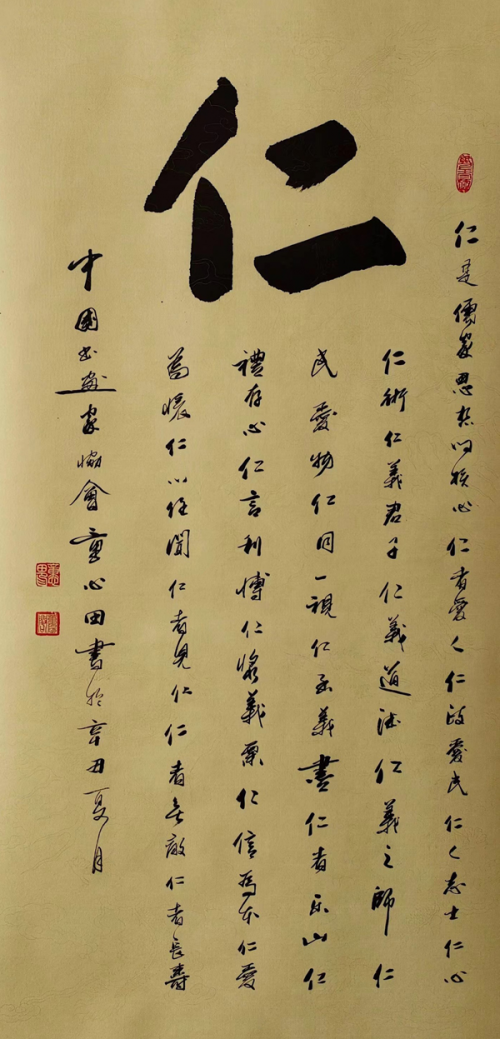 仁
仁是儒家思想的核心仁者愛人仁政愛民仁人志士仁心
仁術仁義君子仁義道德仁義之師仁
民愛物仁同一視仁至義盡仁者乐山仁
禮存心仁言利博仁漿義粟仁信爲本仁愛
爲懷仁以待聞仁者見仁仁者無敵仁者長壽
中國书畫家協會童心田書於辛丑夏月